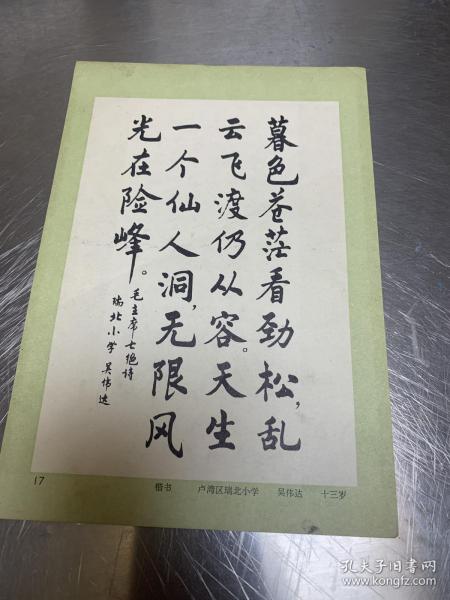 暮色苍茫看劲松，乱
云飞渡仍从容。天生
一个仙人洞，无限风
光在险峰。
毛主席七绝诗
瑞北小学 吴伟达
17
楷书 卢湾区瑞北小学 吴伟达 十三岁
孔夫子旧书网
www.kongfz.com